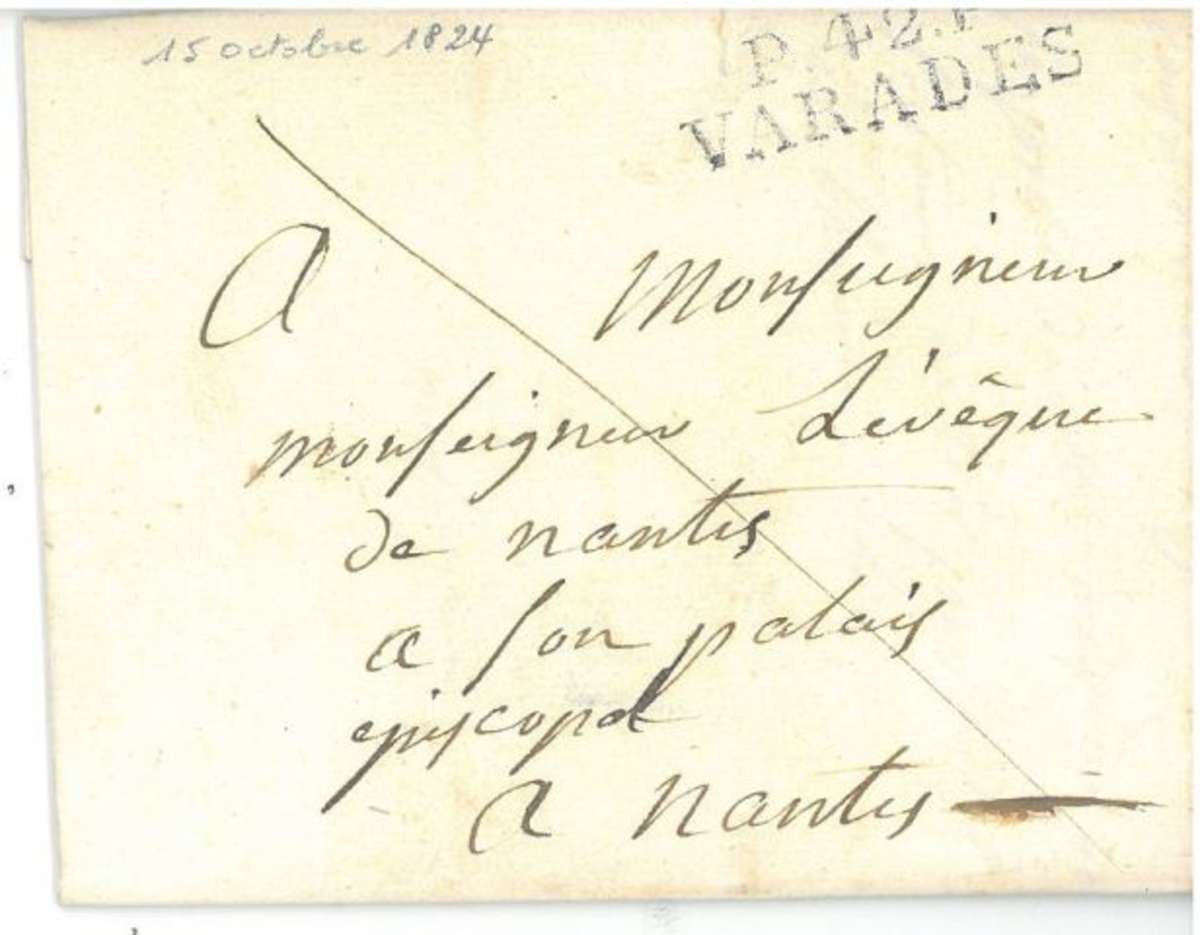 15 octobre 1824
P. 42. P
VARADES
A Monseigneur
monseigneur Lévêque
de nantes
a son palais
episcopal
a nantes